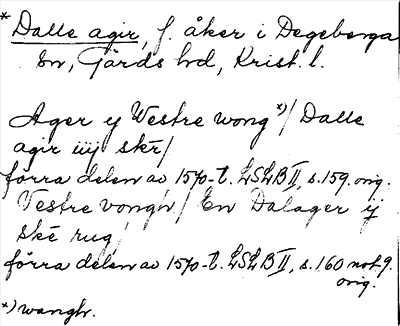 * Dalle agir, f. åker i Degeberga
sn, Gärds hd, Krist. l.
Ager ÿ Westre wong *)/ Dalle
agir iiij skr/
förra delen av 1570-t. LSLB II, s. 159. orig.
Vestre vongh / En Dalager ÿ
ske rug/
förra delen av 1570-t. LSLB II, s. 160 not 9.
orig.
*) wangh.